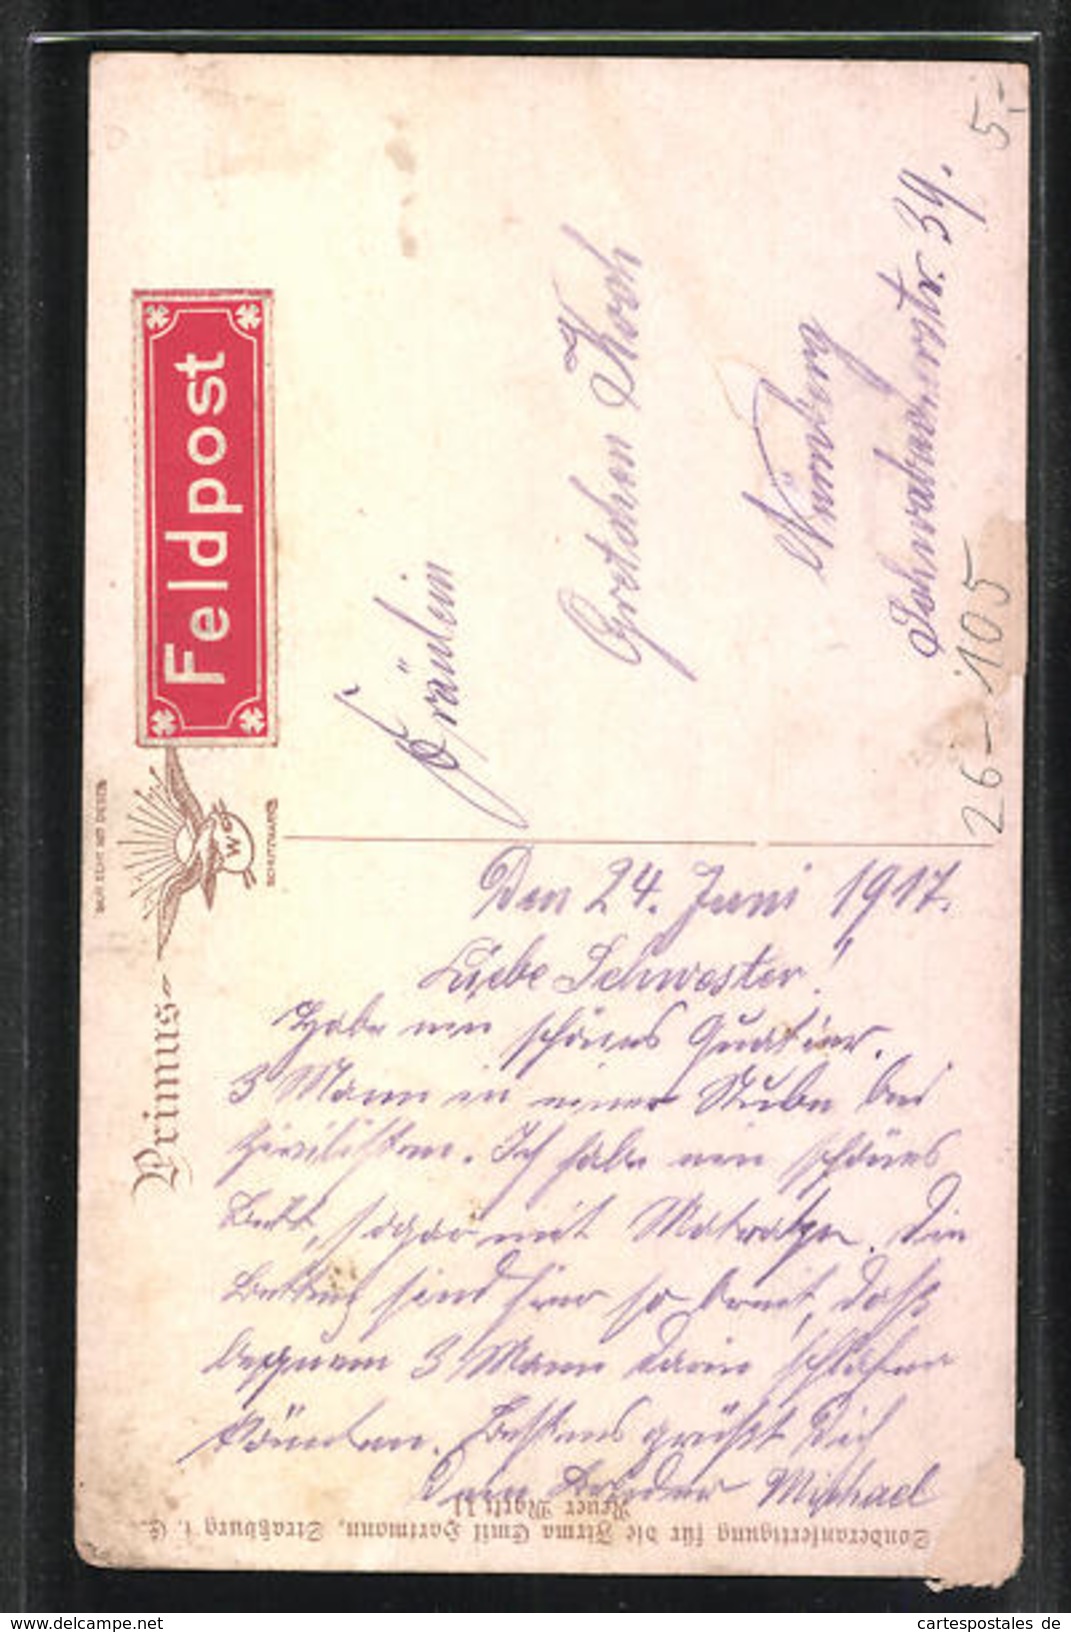 Feldpost
Fräulein
Gretchen Koch
Nürnberg
Schwabacherstr. 39.
5,-
26-105
Primus-
W S
Den 24. Juni 1917.
Liebe Schwester!
Habe ein schönes Quatier.
3 Mann in einer Stube bei
Zivilisten. Ich habe ein schönes
Bett, sogar mit Matratze. Die
sind hier so breit, daß
bequem 3 Mann darin schlafen
könnten. Bestens grüßt Dich
Dein Bruder Michael
Sonderanfertigung für die Firma Emil Hartmann, Straßburg i. E.
Neuer Markt 11
www.delcampe.net
cartespostales de